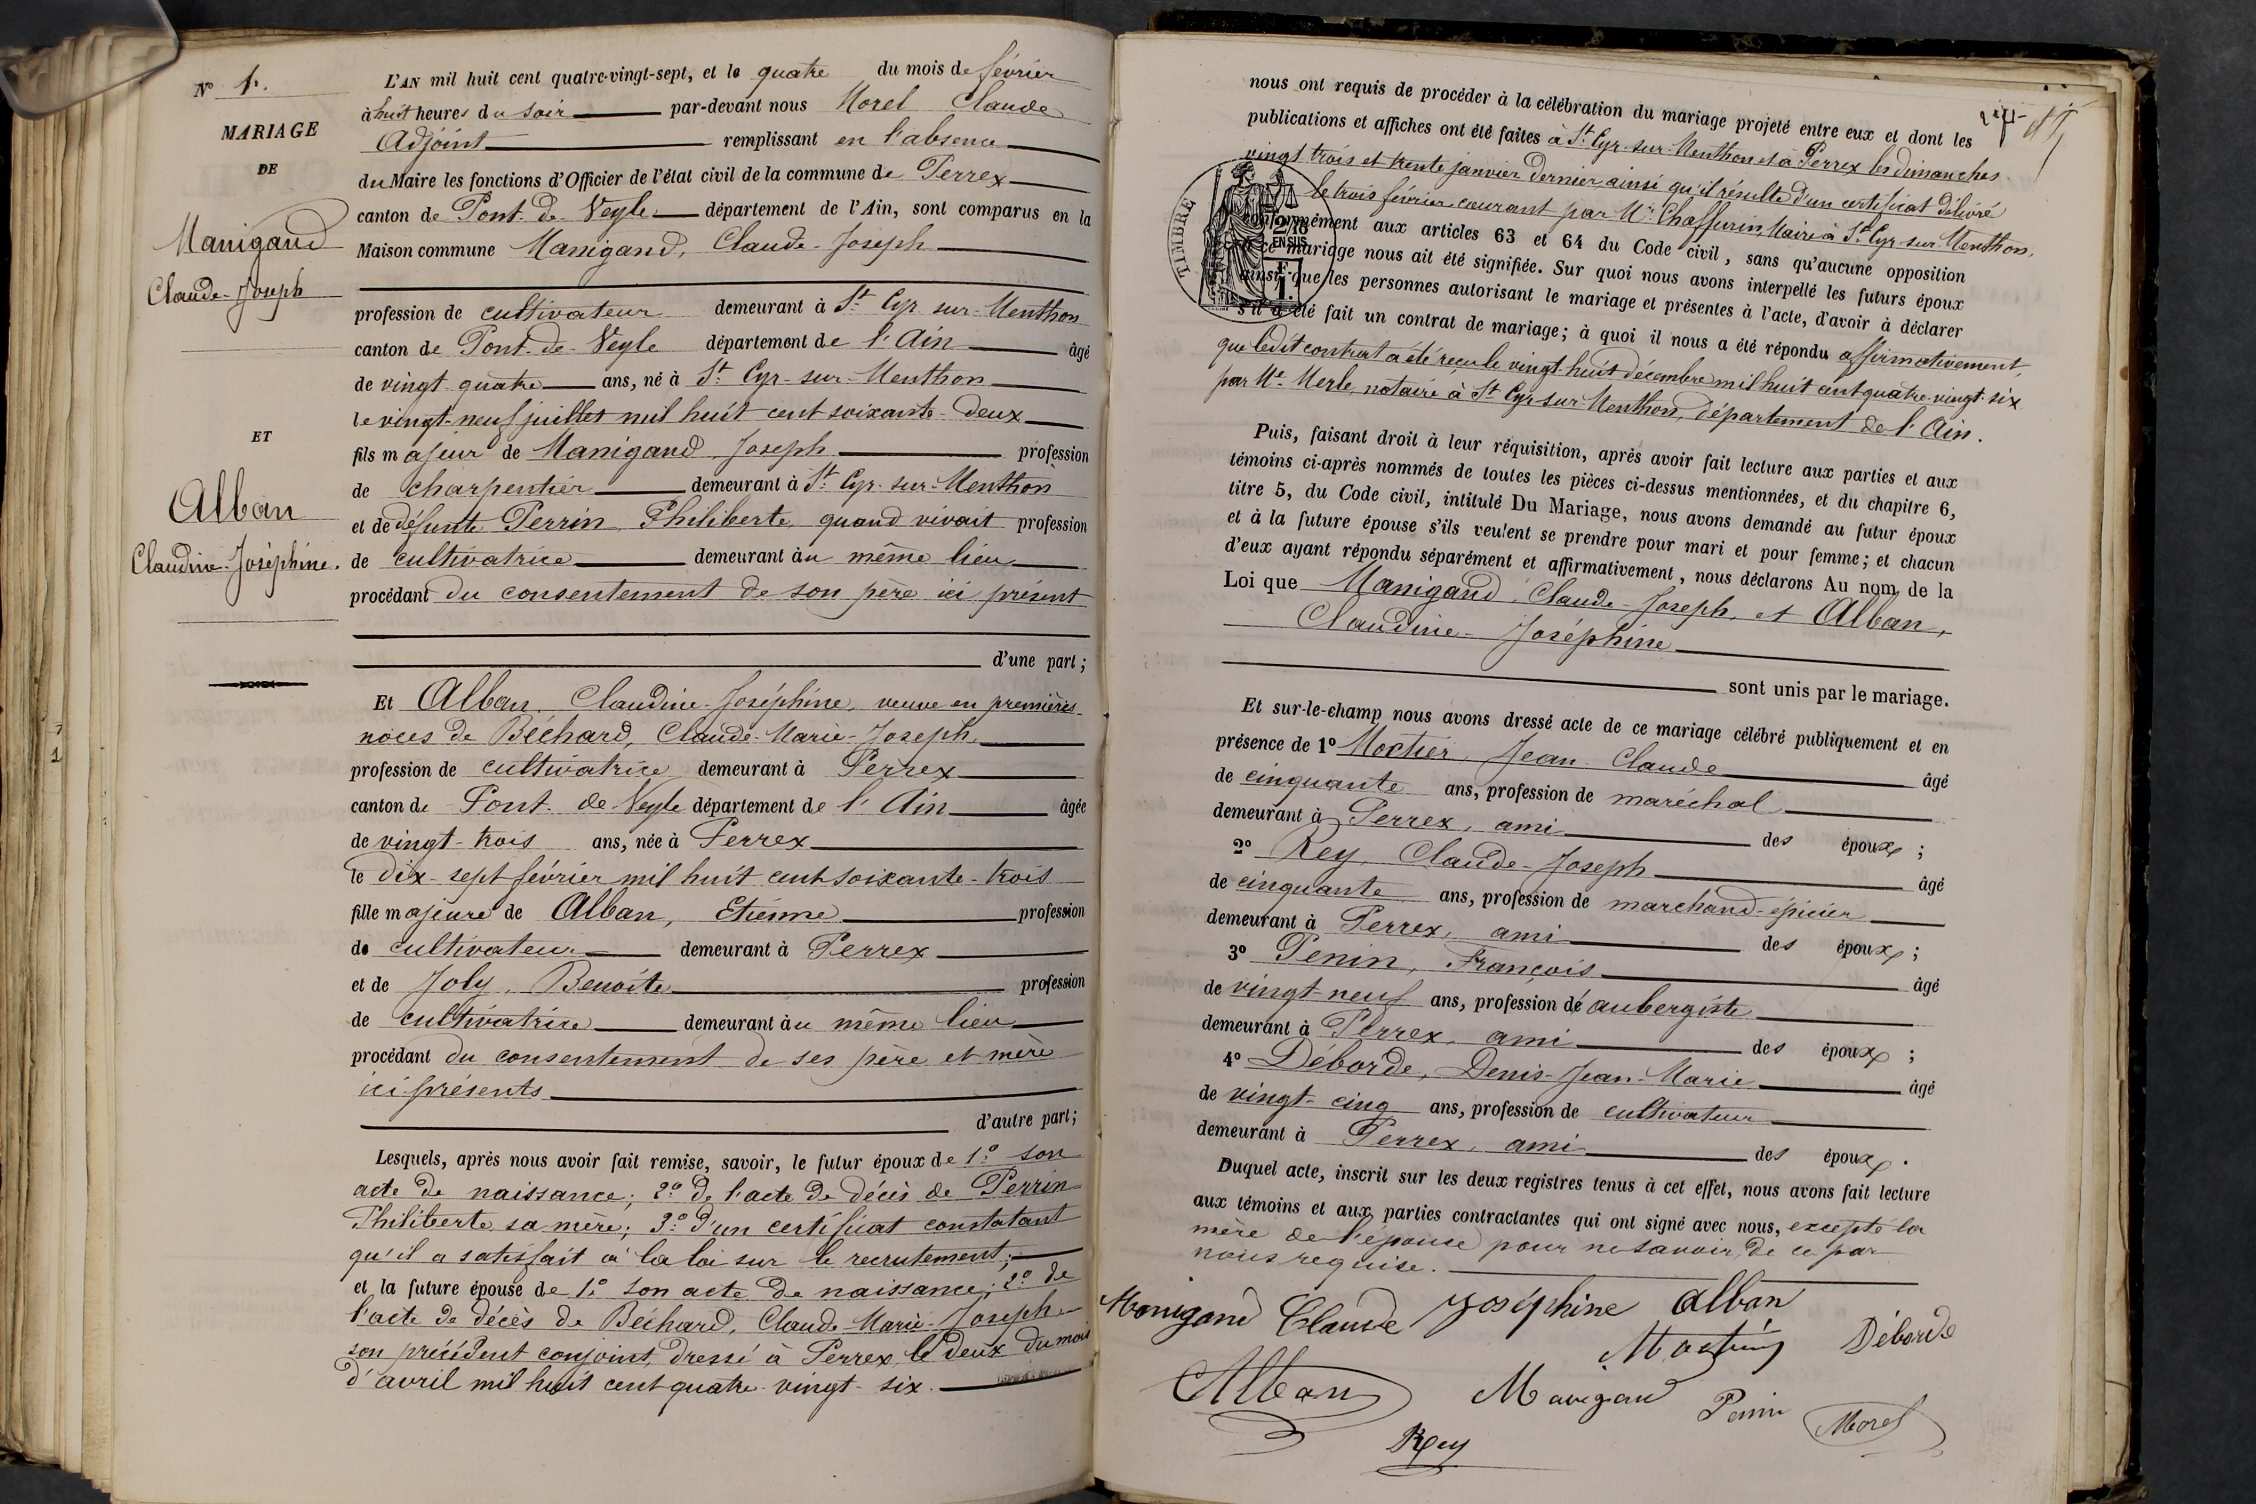 N° 1.
MARIAGE
DE
Manigand
Claude-Joseph
ET
Alban
Claudine-Joséphine.
L'AN mil huit cent quatre-vingt-sept, et le quatre du mois de février
à huit heures du soir par-devant nous Morel Claude
Adjoint remplissant en l'absence
du Maire les fonctions d'Officier de l'état civil de la commune de Perrex
canton de Pont-de-Veyle département de l'Ain, sont comparus en la
Maison commune Manigand, Claude-Joseph
profession de cultivateur demeurant à St Cyr-sur-Menthon
canton de Pont-de-Veyle département de l'Ain âgé
de vingt-quatre ans, né à St Cyr-sur-Menthon
le vingt-neuf juillet mil huit cent soixante-deux
fils majeur de Manigand Joseph profession
de charpentier demeurant à St Cyr-sur-Menthon
et de défunte Perrin Philiberte, quand vivait profession
de cultivatrice demeurant au même lieu
procédant du consentement de son père ici présent
d'une part;
Et Alban, Claudine-Joséphine, veuve en premières
noces de Béchard, Claude-Marie-Joseph,
profession de cultivatrice demeurant à Perrex
canton de Pont-de-Veyle département de l'Ain âgée
de vingt-trois ans, née à Perrex
le dix-sept février mil huit cent soixante-trois
fille majeure de Alban, Etienne profession
de cultivateur demeurant à Perrex
et de Joly, Benoîte profession
de cultivatrice demeurant au même lieu
procédant du consentement de ses père et mère
ici présents
d'autre part;
Lesquels, après nous avoir fait remise, savoir, le futur époux de 1° son
acte de naissance; 2° de l'acte de décès de Perrin
Philiberte sa mère; 3° d'un certificat constatant
qu'il a satisfait à la loi sur le recrutement;
et la future épouse de 1° son acte de naissance; 2° de
l'acte de décès de Béchard, Claude-Marie-Joseph
son précédent conjoint, dressé à Perrex, le deux du mois
d'avril mil huit cent quatre-vingt-six.
nous ont requis de procéder à la célébration du mariage projeté entre eux et dont les
publications et affiches ont été faites à St Cyr-sur-Menthon et à Perrex les dimanches
vingt trois et trente janvier dernier ainsi qu'il résulte d'un certificat délivré
le trois février courant par Mr Chaffurin, Maire à St Cyr-sur-Menthon,
conformément aux articles 63 et 64 du Code civil, sans qu'aucune opposition
à ce mariage nous ait été signifiée. Sur quoi nous avons interpellé les futurs époux
ainsi que les personnes autorisant le mariage et présentes à l'acte, d'avoir à déclarer
s'il a été fait un contrat de mariage; à quoi il nous a été répondu affirmativement,
que ledit contrat a été reçu le vingt huit décembre mil huit cent quatre-vingt-six
par Me Merle, notaire à St Cyr-sur-Menthon, département de l'Ain.
TIMBRE
2/10
EN SUS
1 F.
Puis, faisant droit à leur réquisition, après avoir fait lecture aux parties et aux
témoins ci-après nommés de toutes les pièces ci-dessus mentionnées, et du chapitre 6,
titre 5, du Code civil, intitulé Du Mariage, nous avons demandé au futur époux
et à la future épouse s'ils veulent se prendre pour mari et pour femme; et chacun
d'eux ayant répondu séparément et affirmativement, nous déclarons Au nom de la
Loi que Manigand Claude-Joseph, et Alban,
Claudine-Joséphine
sont unis par le mariage.
Et sur-le-champ nous avons dressé acte de ce mariage célébré publiquement et en
présence de 1° Mortier, Jean-Claude âgé
de cinquante ans, profession de maréchal
demeurant à Perrex, ami des époux;
2° Rey, Claude-Joseph âgé
de cinquante ans, profession de marchand-épicier
demeurant à Perrex, ami des époux;
3° Penin, François âgé
de vingt-neuf ans, profession de aubergiste
demeurant à Perrex, ami des époux;
4° Déborde, Denis-Jean-Marie âgé
de vingt-cinq ans, profession de cultivateur
demeurant à Perrex, ami des époux.
Duquel acte, inscrit sur les deux registres tenus à cet effet, nous avons fait lecture
aux témoins et aux parties contractantes qui ont signé avec nous, excepté la
mère de l'épouse pour ne savoir, de ce par
nous requise.
Manigand Claude Joséphine Alban
Mortier Déborde
Alban Manigand Penin Morel
Rey